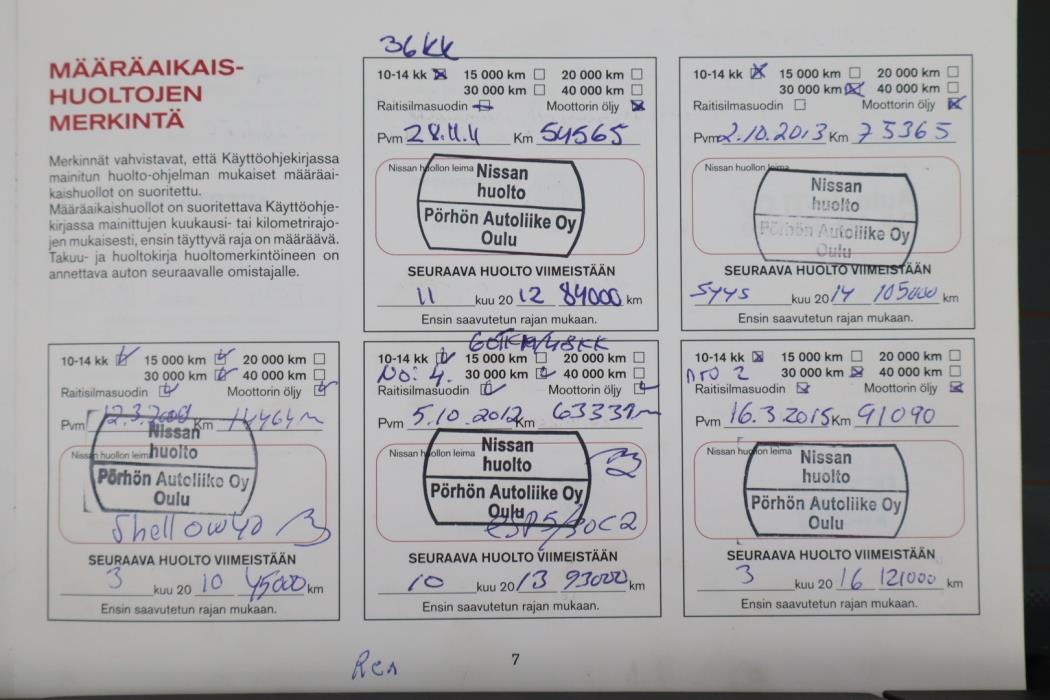 MÄÄRÄAIKAIS-
HUOLTOJEN
MERKINTÄ
Merkinnät vahvistavat, että Käyttöohjekirjassa
mainitun huolto-ohjelman mukaiset määräai-
kaishuollot on suoritettu.
Määräaikaishuollot on suoritettava Käyttöohje-
kirjassa mainittujen kuukausi- tai kilometrirajo-
jen mukaisesti, ensin täyttyvä raja on määräävä.
Takuu- ja huoltokirja huoltomerkintöineen on
annettava auton seuraavalle omistajalle.
36KK
10-14 kk 15 000 km 20 000 km
30 000 km 40 000 km
Raitisilmasuodin Moottorin öljy
Pvm 28.11.4 Km 54565
Nissan huollon leima
Nissan
huolto
Pörhön Autoliike Oy
Oulu
SEURAAVA HUOLTO VIIMEISTÄÄN
11 kuu 20 12 84000 km
Ensin saavutetun rajan mukaan.
10-14 kk 15 000 km 20 000 km
30 000 km 40 000 km
Raitisilmasuodin Moottorin öljy
Pvm 2.10.2013 Km 75365
Nissan huollon leima
Nissan
huolto
Pörhön Autoliike Oy
Oulu
SEURAAVA HUOLTO VIIMEISTÄÄN
Syys kuu 20 14 105000 km
Ensin saavutetun rajan mukaan.
10-14 kk 15 000 km 20 000 km
30 000 km 40 000 km
Raitisilmasuodin Moottorin öljy
Pvm 12.3. Km
Nissan huollon leima
Nissan
huolto
Pörhön Autoliike Oy
Oulu
Shell 0W40
SEURAAVA HUOLTO VIIMEISTÄÄN
3 kuu 20 10 45000 km
Ensin saavutetun rajan mukaan.
60TKM/48KK
10-14 kk 15 000 km 20 000 km
No: 4. 30 000 km 40 000 km
Raitisilmasuodin Moottorin öljy
Pvm 5.10.2012 Km 63331
Nissan huollon leima
Nissan
huolto
Pörhön Autoliike Oy
Oulu
SEURAAVA HUOLTO VIIMEISTÄÄN
10 kuu 20 13 93000 km
Ensin saavutetun rajan mukaan.
10-14 kk 15 000 km 20 000 km
nro 2 30 000 km 40 000 km
Raitisilmasuodin Moottorin öljy
Pvm 16.3.2015 Km 91090
Nissan huollon leima
Nissan
huolto
Pörhön Autoliike Oy
Oulu
SEURAAVA HUOLTO VIIMEISTÄÄN
3 kuu 20 16 121000 km
Ensin saavutetun rajan mukaan.
7